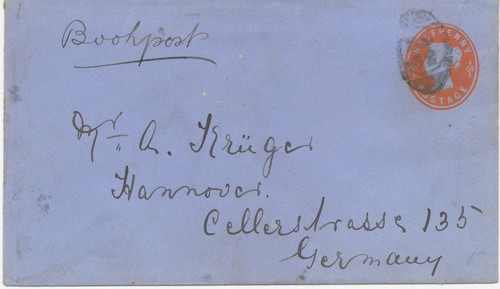 Bookpost
HALFPENNY
POSTAGE
Mr. A. Krüger
Hannover.
Cellerstrasse 135
Germany